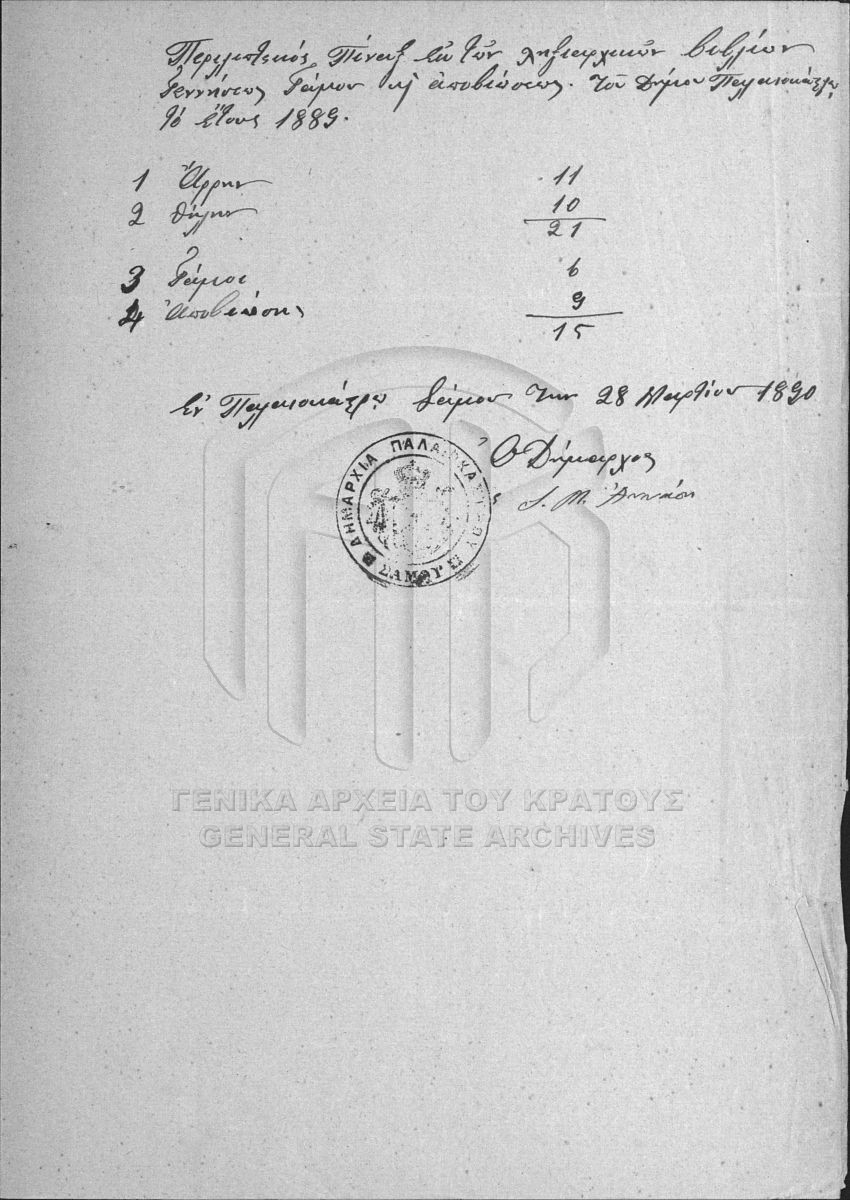 Περιληπτικός Πίναξ ἐκ τῶν ληξιαρχικῶν βιβλίων
Γεννήσεως Γάμου κỳ ἀποβιώσεως. τοῦ Δήμου Παλαιοκάστρου
τὸ ἔτους 1889.
1 Ἄρρην 11
2 Θήλην 10
21
3 Γάμοι 6
4 Ἀποβιώσης 9
15
Ἐν Παλαιοκάστρῳ Σάμου την 28 Μαρτίου 1890
Ὁ Δήμαρχος
ΔΗΜΑΡΧΙΑ ΠΑΛΑΙΟΚΑΣΤΡΟΥ
ΣΑΜΟΥ
ΓΕΝΙΚΑ ΑΡΧΕΙΑ ΤΟΥ ΚΡΑΤΟΥΣ
GENERAL STATE ARCHIVES